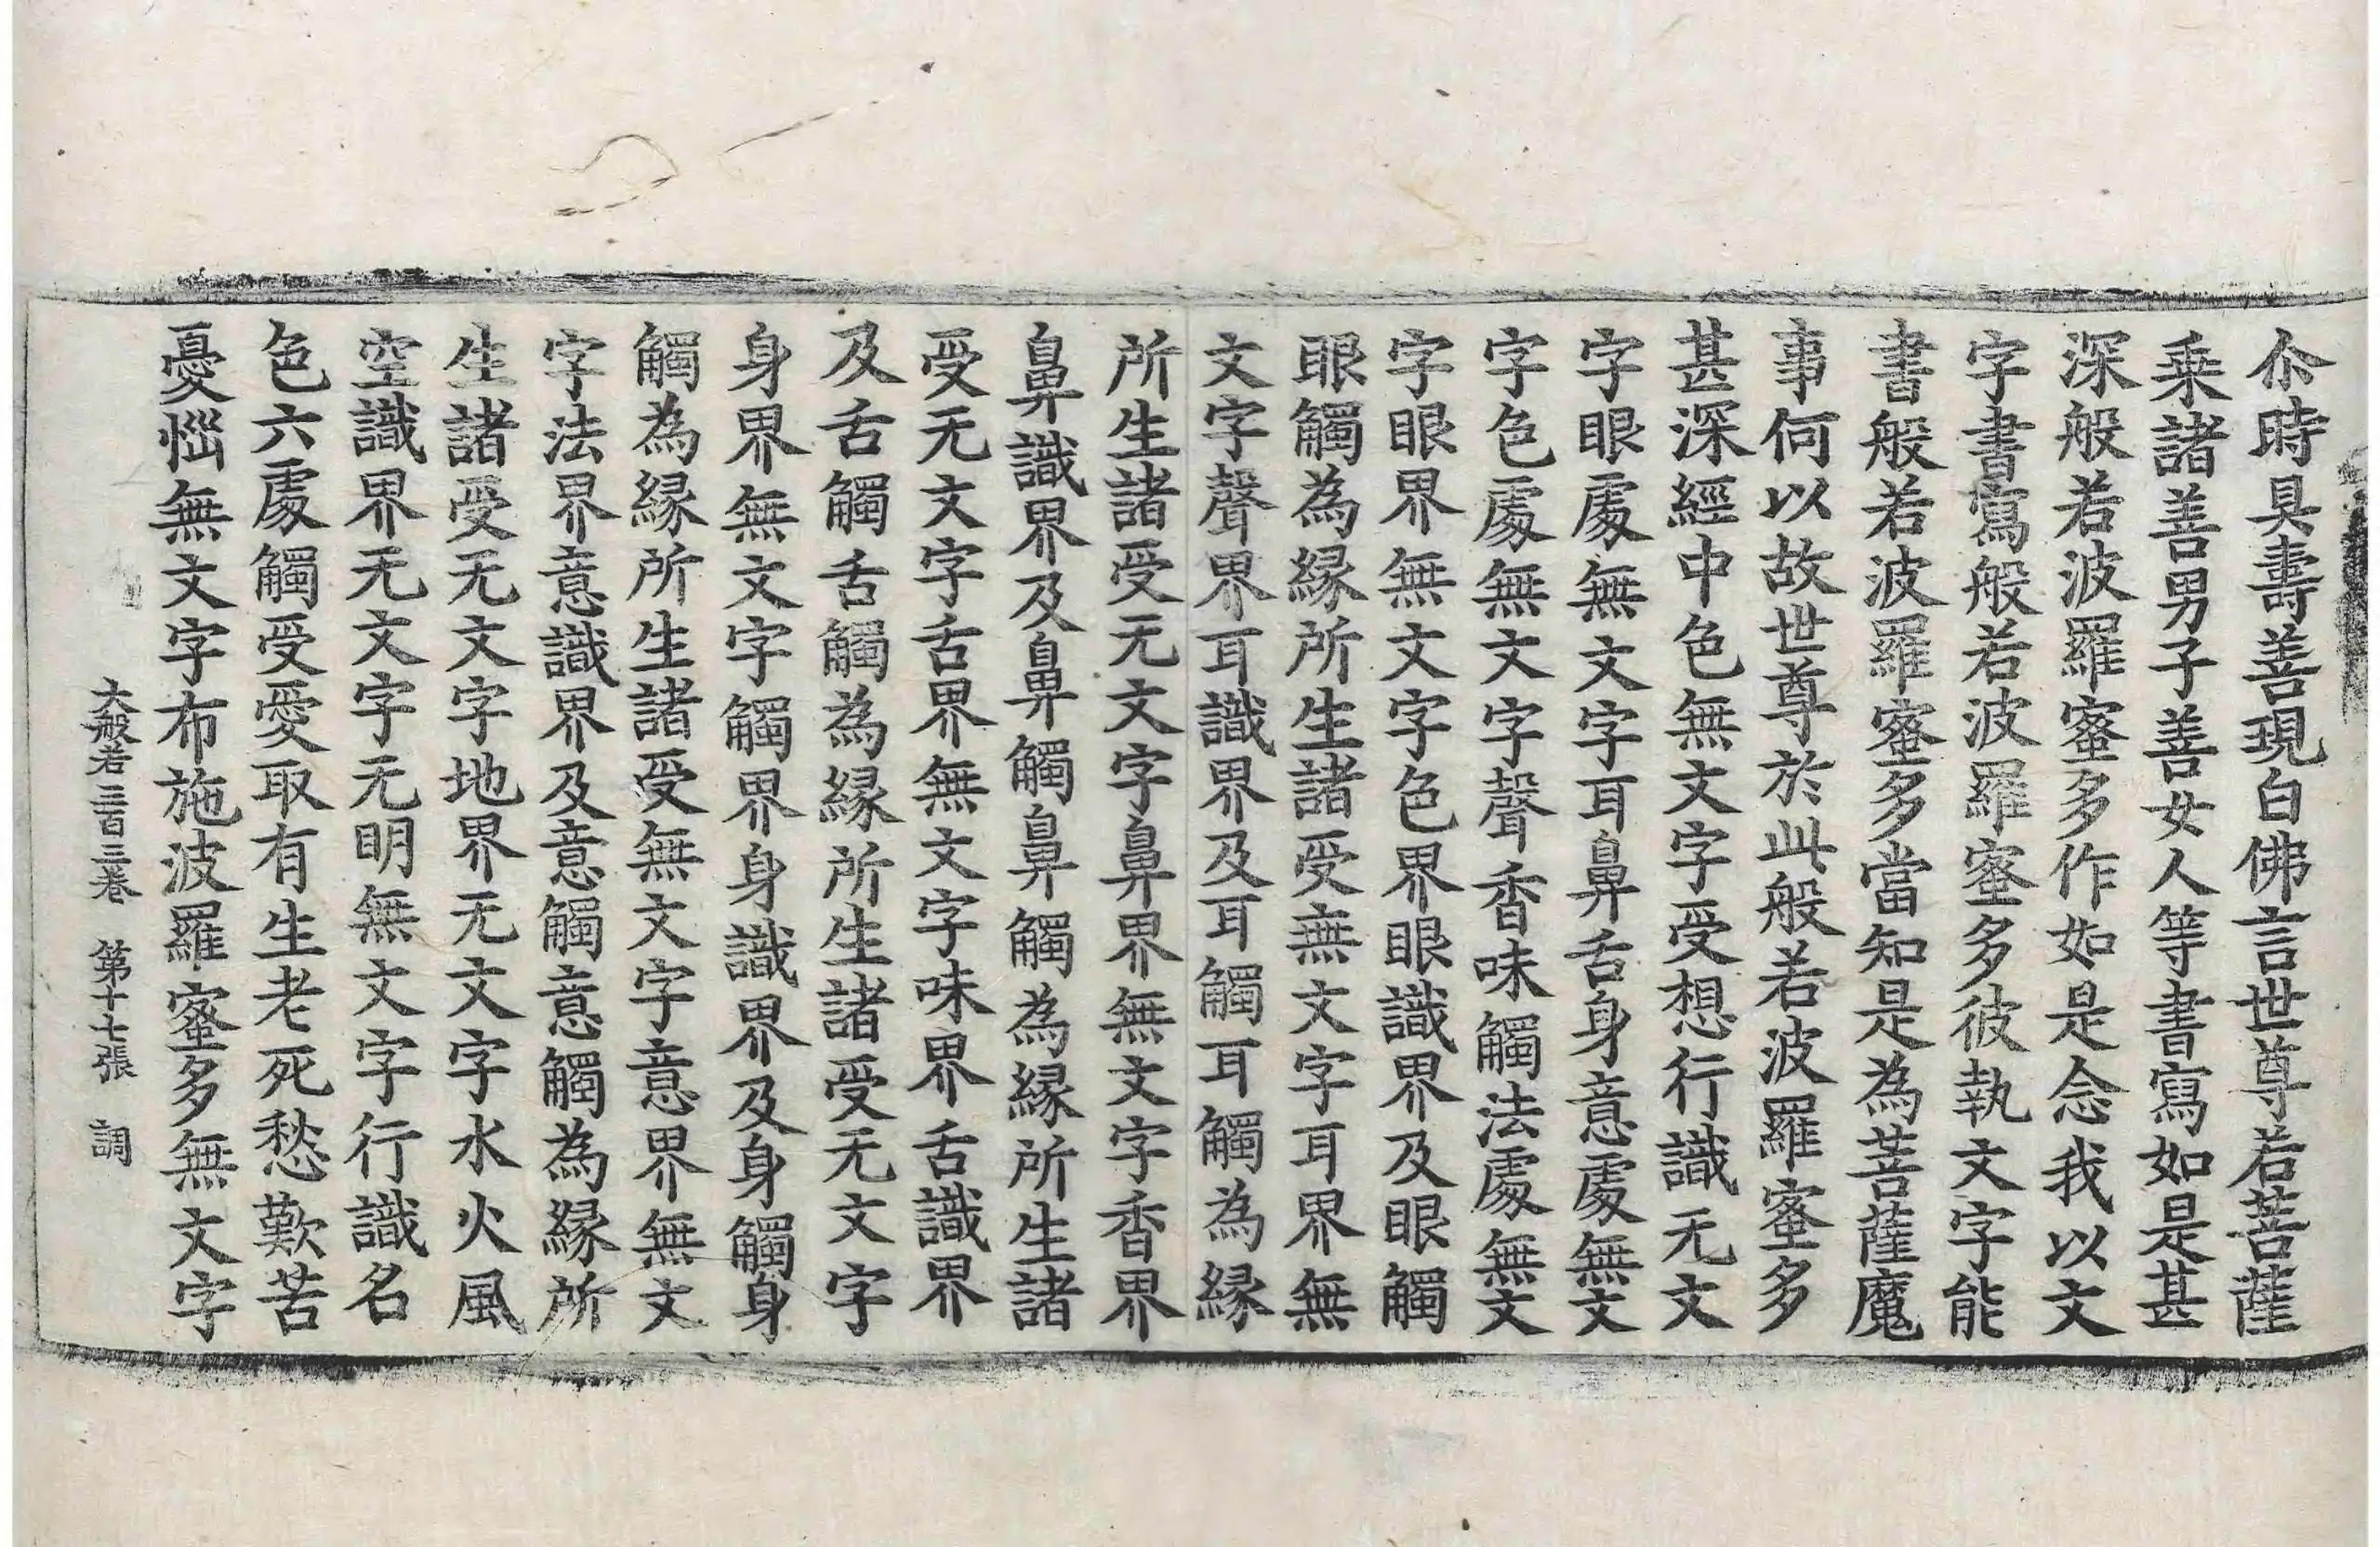 尒時具壽善現白佛言世尊若菩薩
乗諸善男子善女人等書寫如是甚
深般若波羅蜜多作如是念我以文
字書寫般若波羅蜜多彼執文字能
書般若波羅蜜多當知是為菩薩魔
事何以故世尊於此般若波羅蜜多
甚深經中色無文字受想行識无文
字眼處無文字耳鼻舌身意處無文
字色處無文字聲香味觸法處無文
字眼界無文字色界眼識界及眼觸
眼觸為緣所生諸受無文字耳界無
文字聲界耳識界及耳觸耳觸為緣
所生諸受无文字鼻界無文字香界
鼻識界及鼻觸鼻觸為緣所生諸
受无文字舌界無文字味界舌識界
及舌觸舌觸為緣所生諸受无文字
身界無文字觸界身識界及身觸身
觸為緣所生諸受無文字意界無文
字法界意識界及意觸意觸為緣所
生諸受无文字地界无文字水火風
空識界无文字无明無文字行識名
色六處觸受愛取有生老死愁歎苦
憂惱無文字布施波羅蜜多無文字
大般若三百三卷 第十七張 調